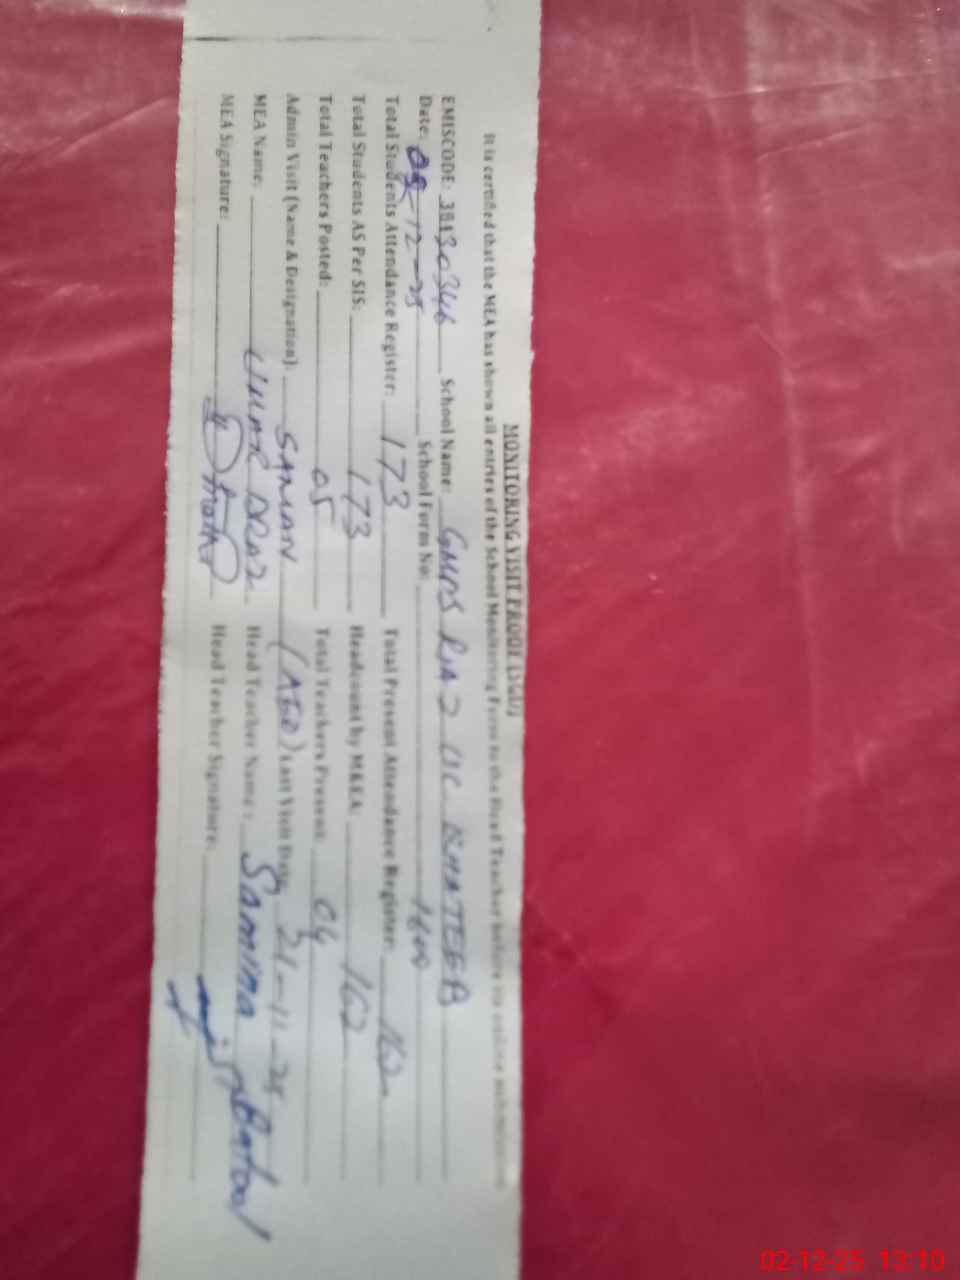 MONITORING VISIT PROOF (SGD)
It is certified that the MEA has shown all entries of the School Monitoring Form to the Head Teacher before its online submission
EMISCODE: 38130346 School Name: GMPS RIAZ UC KHATEEB
Date: 02-12-25 School Form No:
Total Students Attendance Register: 173 Total Present Attendance Register: 162
Total Students AS Per SIS: 173 Headcount by MEA: 162
Total Teachers Posted: 05 Total Teachers Present 04
Admin Visit (Name & Designation): (AEO) Last Visit Date 21-11-25
MEA Name: UMAR DRAZ Head Teacher Name: Samina Batool
MEA Signature: Head Teacher Signature:
02-12-25 13:10